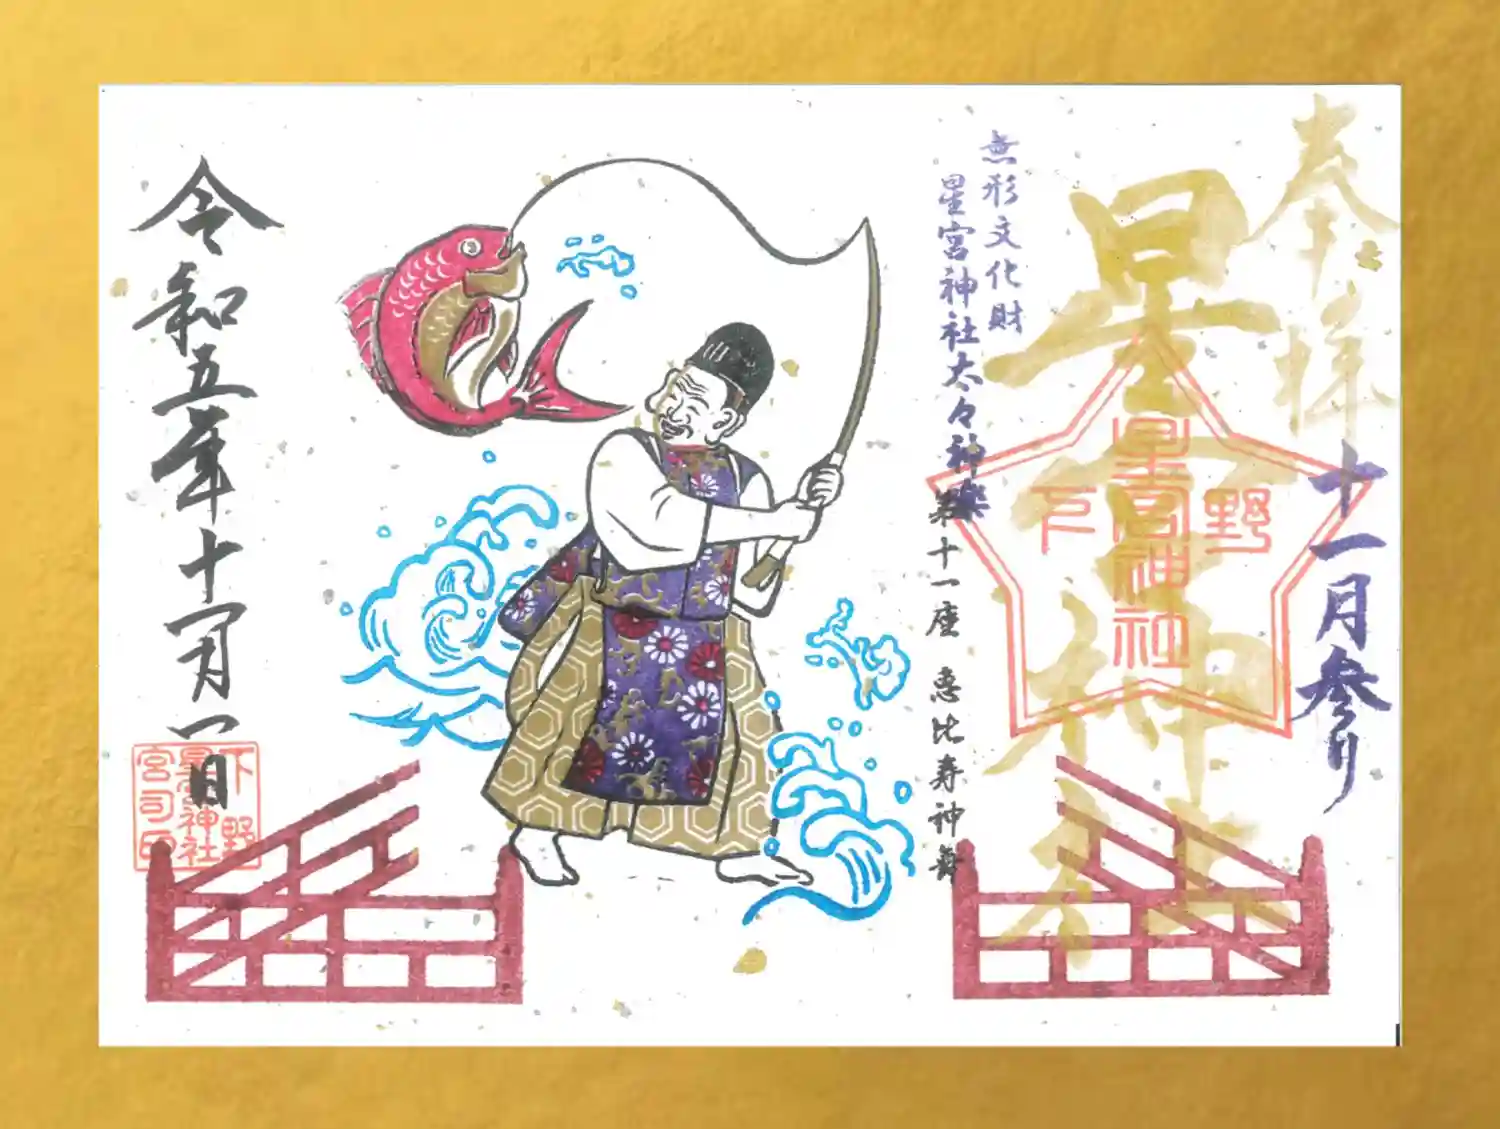 奉拝
十一月参り
星宮神社
下野
星宮神社
無形文化財
星宮神社太々神楽
第十一座 恵比寿神舞
令和五年十一月一日
下野
星宮神社
宮司印